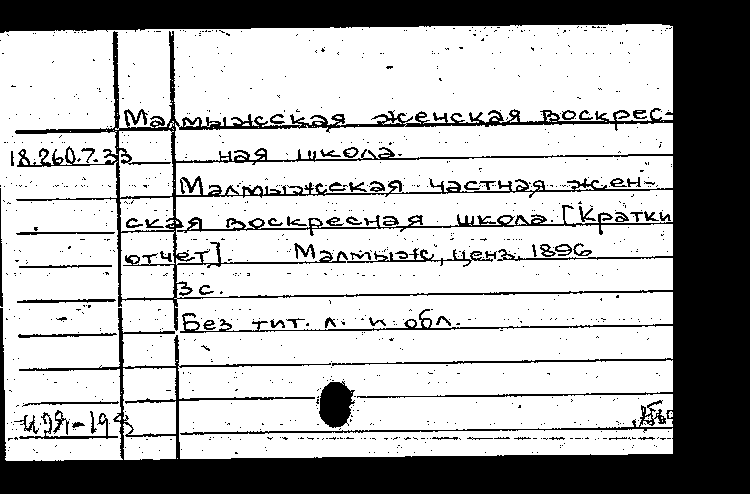 Малмыжская женская воскрес-
18.260.7.33 ная школа.
Малмыжская частная жен-
ская воскресная школа. [Кратки
отчет]. Малмыж, ценз. 1896
3 с.
Без тит. л. и обл.